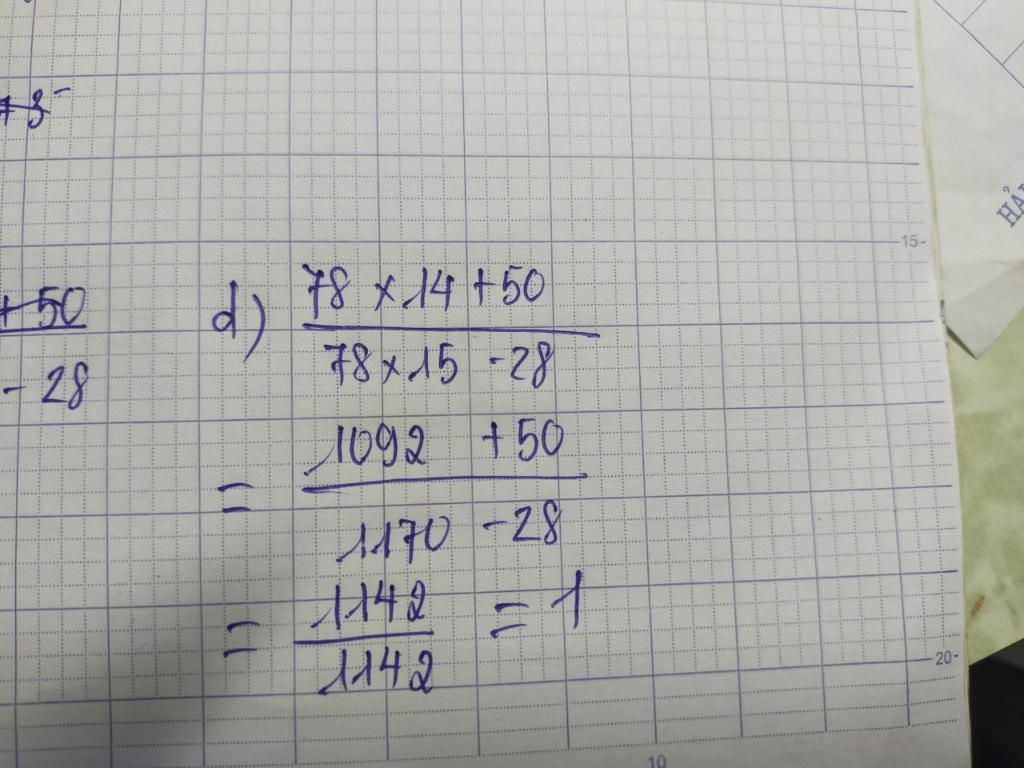 + 50
- 28
d) 78 × 14 + 50
78 × 15 - 28
= 1092 + 50
1170 - 28
= 1142 = 1
1142
15-
20-
10